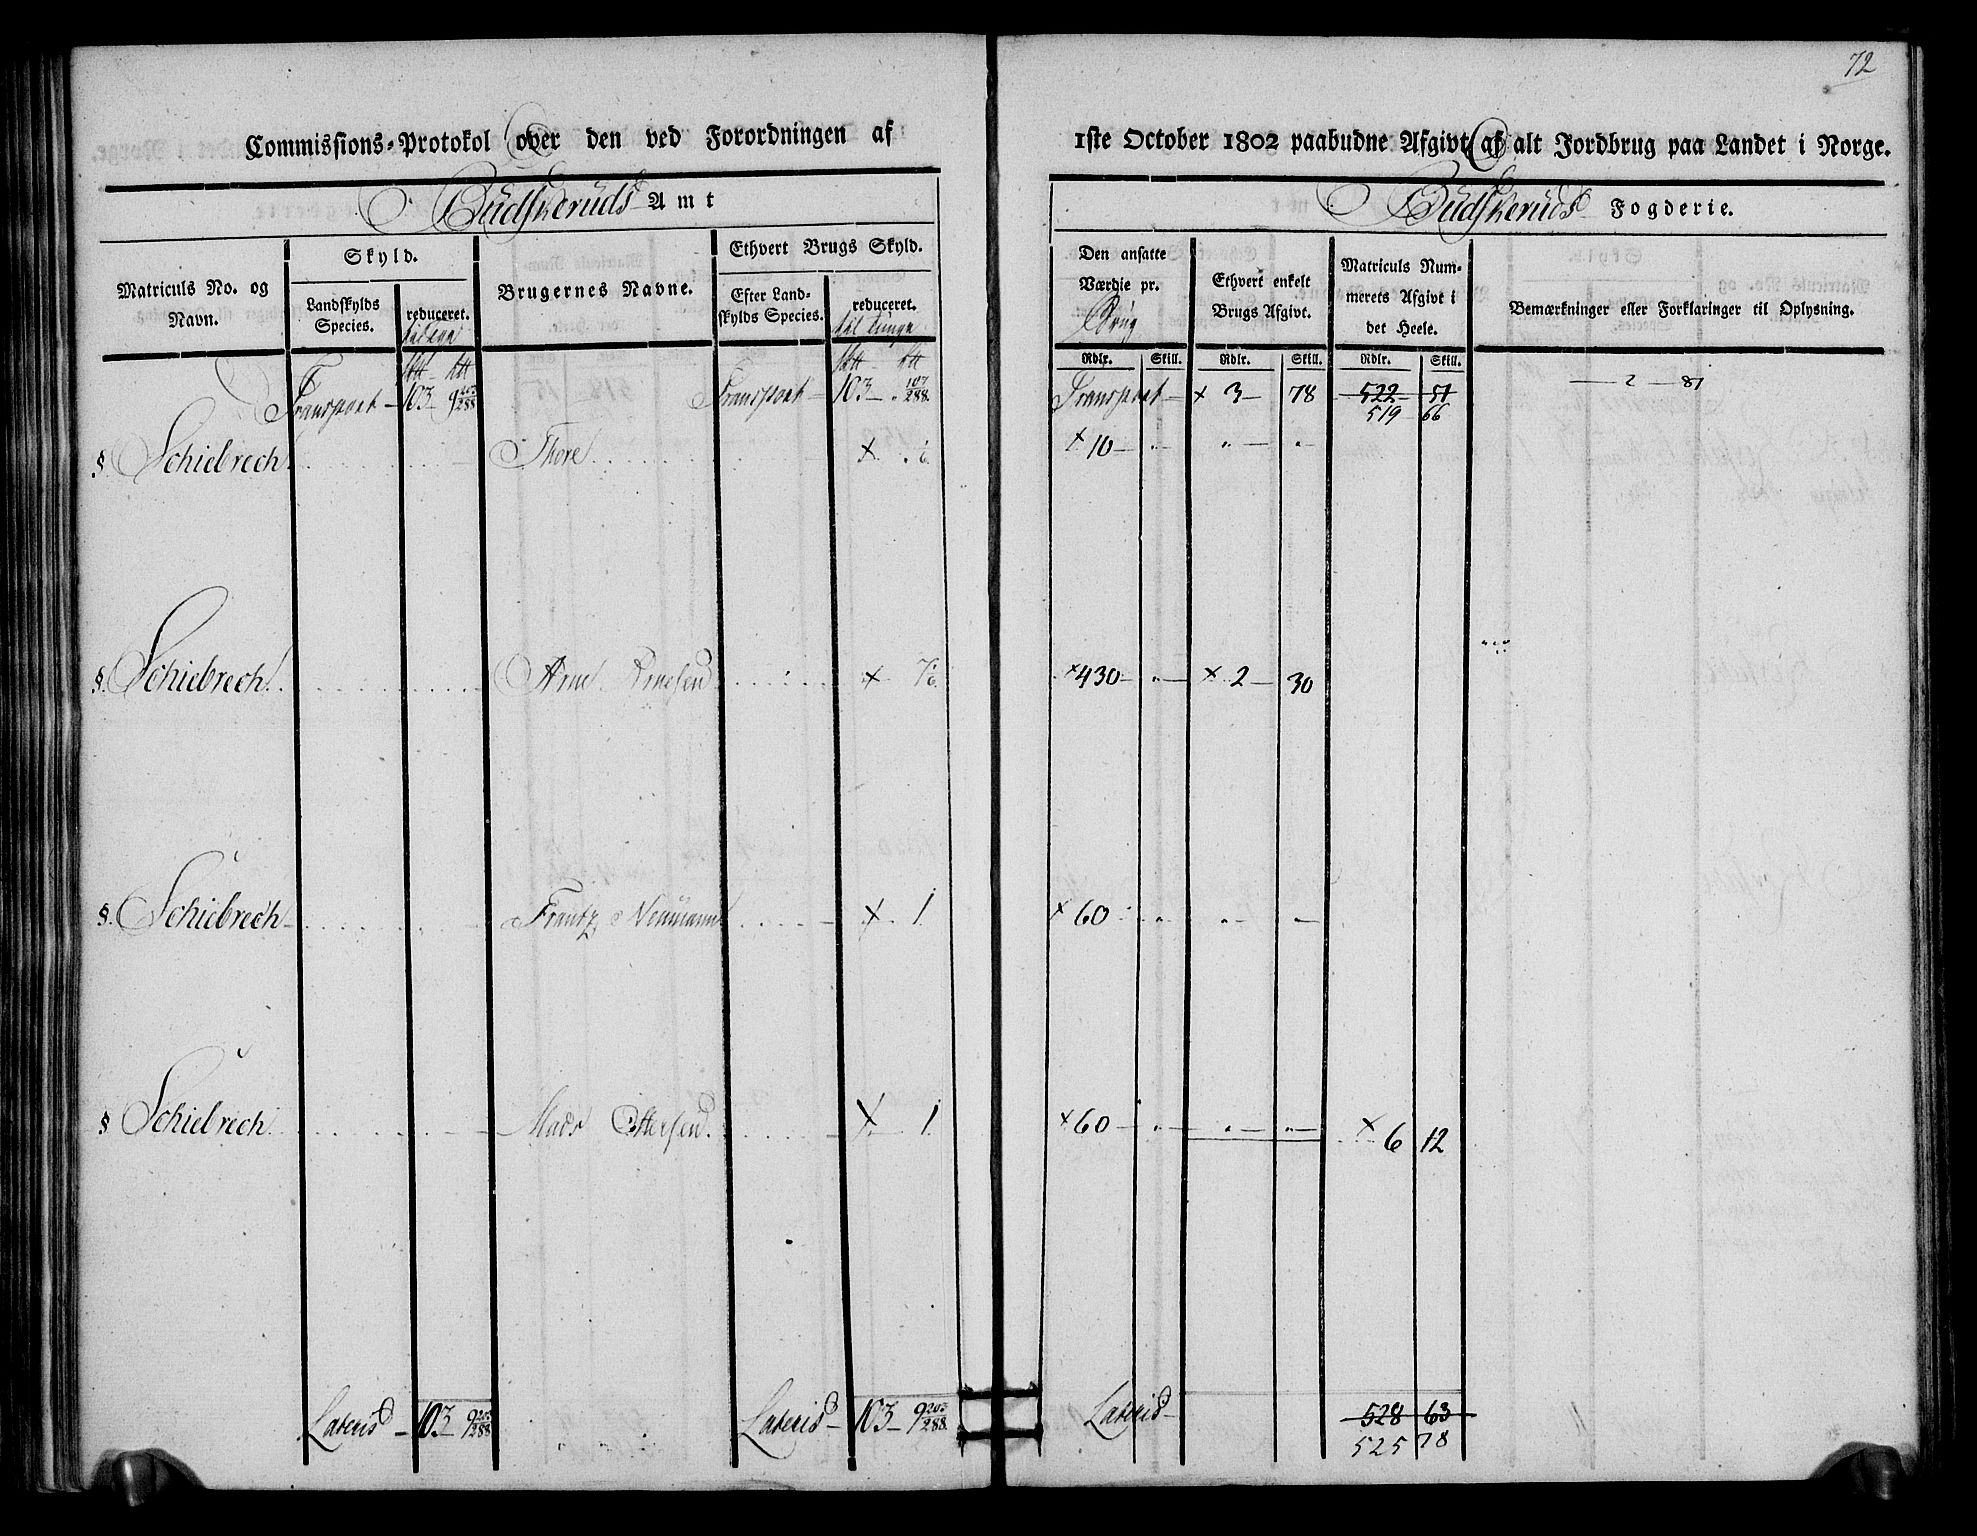 72
Commissions-Protokol over den ved Forordningen af 1ste October 1802 paabudne Afgivt af alt Jordbrug paa Landet i Norge.
Budskeruds Amt
Budskeruds Fogderie.
Matriculs No. og Navn.
Skyld.
Landskylds Species.
reduceret.
Brugernes Navne.
Ethvert Brugs Skyld.
Efter Landskylds Species.
reduceret.
til tunge
Den ansatte Værdie pr.
Brug
Ethvert enkelt Brugs Afgivt.
Matriculs Nummerets Afgivt i det Heele.
Bemærkninger eller Forklaringer til Oplysning.
Rdlr. Skill. Rdlr. Skill. Rdlr. Skill.
Transport - 103 - 9 203/288 Transport - 103 - " 107/288 Transport - × 3 - 78 522 - 51 - 2 - 81
519 66
§ Schiebrech Thore × × 10 - " - " - " -
§. Schiebrech Arne Arnesen × × 430 - " - × 2 - 30
§. Schiebrech Frantz Neumann × 1 × 60 " " -
§ Schiebrech Mads Ottersen × 1 × 60 - " - " - " - × 6 12
Lateris - 103 - 9 203/288 Lateris - 103 - 9 203/288 Lateris - 528 63
525 78